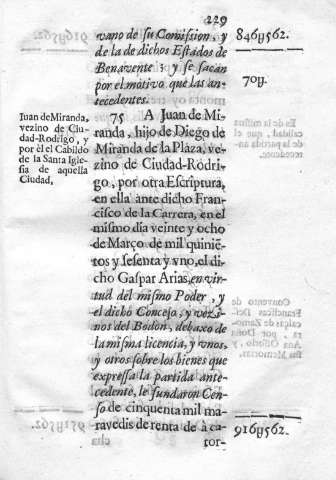 229
vano de su Comission, y
de la de dichos Estados de
Benavente; y se sacan
por el motivo que las an-
tecedentes.
846y562.
70y.
Juan de Miranda,
vezino de Ciu-
dad-Rodrigo, y
por èl el Cabildo
de la Santa Igle-
sia de aquella
Ciudad.
75 A Juan de Mi-
randa, hijo de Diego de
Miranda de la Plaza, ve-
zino de Ciudad-Rodri-
go, por otra Escriptura,
en ella ante dicho Fran-
cisco de la Carrera, en el
mismo dia veinte y ocho
de Março de mil quiniẽ-
tos y sesenta y vno, el di-
cho Gaspar Arias, en vir-
tud del mismo Poder, y
el dicho Concejo, y vezi-
nos del Bodon, debaxo de
la misma licencia, y vnos,
y otros sobre los bienes que
expressa la partida ante-
cedente, le fundaron Cen-
so de cinquenta mil ma-
ravedis de renta de à ca-
tor-
916y562.